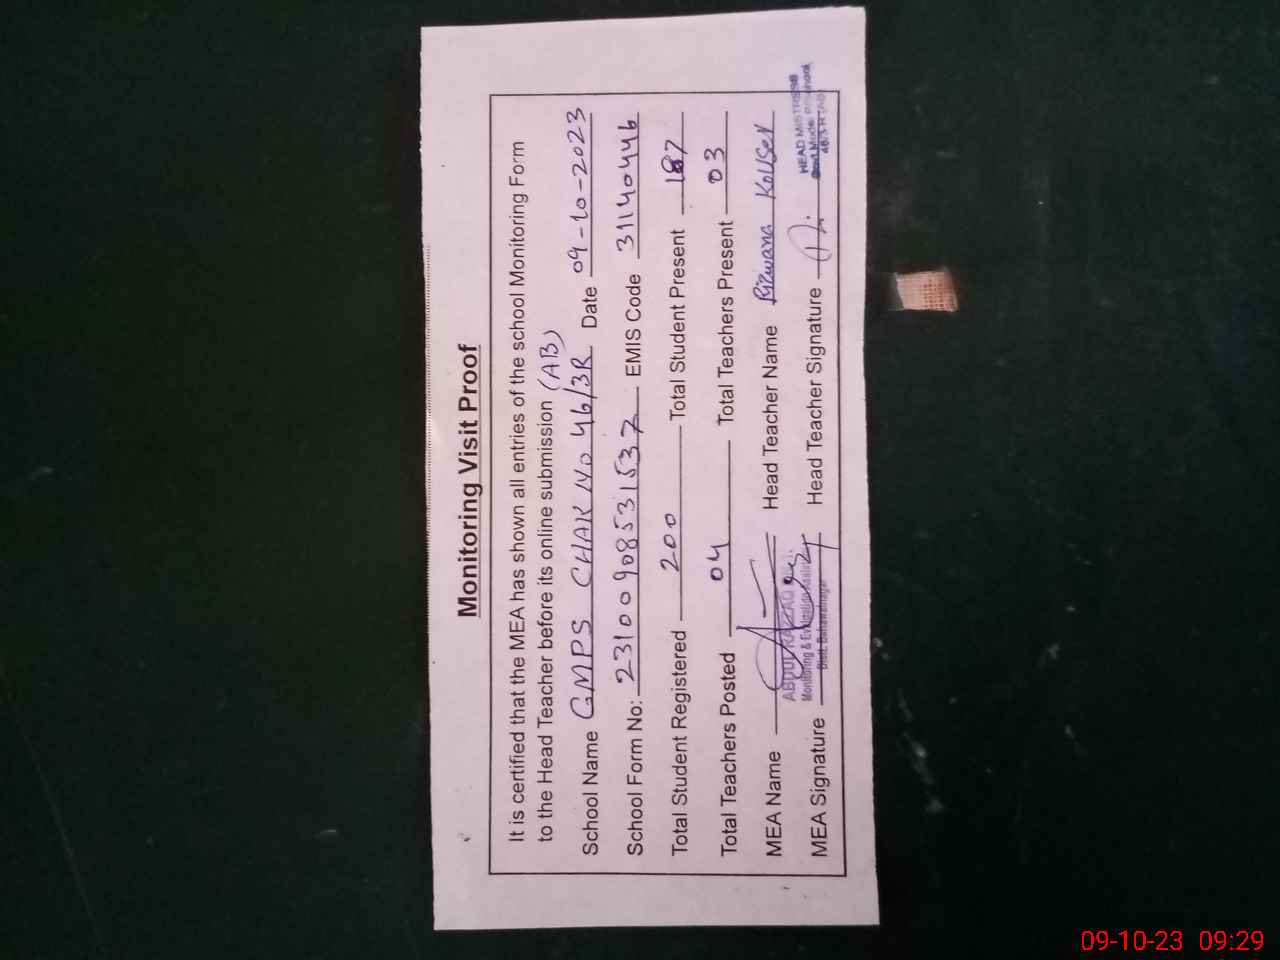 Monitoring Visit Proof
It is certified that the MEA has shown all entries of the school Monitoring Form
to the Head Teacher before its online submission (AB)
School Name GMPS CHAK NO 46/3R Date 09-10-2023
School Form No: 23100908531537 EMIS Code 31140446
Total Student Registered 200 Total Student Present 187
Total Teachers Posted 04 Total Teachers Present 03
MEA Name Head Teacher Name Rizwana Kouser
ABDUL RAZZAQ
Monitoring & Evaluation Assistant
Distt. Bahawalnagar
MEA Signature Head Teacher Signature
HEAD MISTRESS
Govt. Model P/School
46/3R
09-10-23 09:29